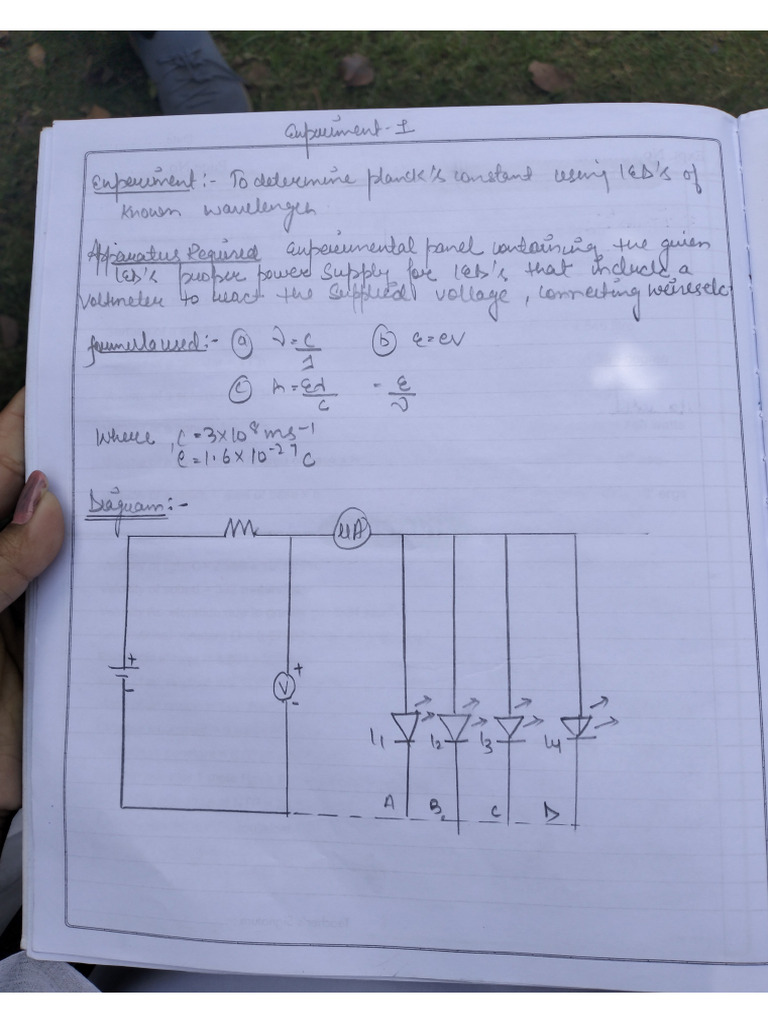 Experiment-1
Experiment:- To determine planck's constant using LED's of
known wavelength
Apparatus Required Experimental panel containing the given
LED's proper power supply for LED's that include a
voltmeter to react the supplied voltage, connecting wires etc
formula used:- (a) ν = c/λ (b) E = eV
(c) h = Eλ/c = E/ν
Where, c = 3×10⁸ ms⁻¹
e = 1.6×10⁻²⁷ C
Diagram:-
μA
+
-
V
+
-
L1 L2 L3 L4
A B C D